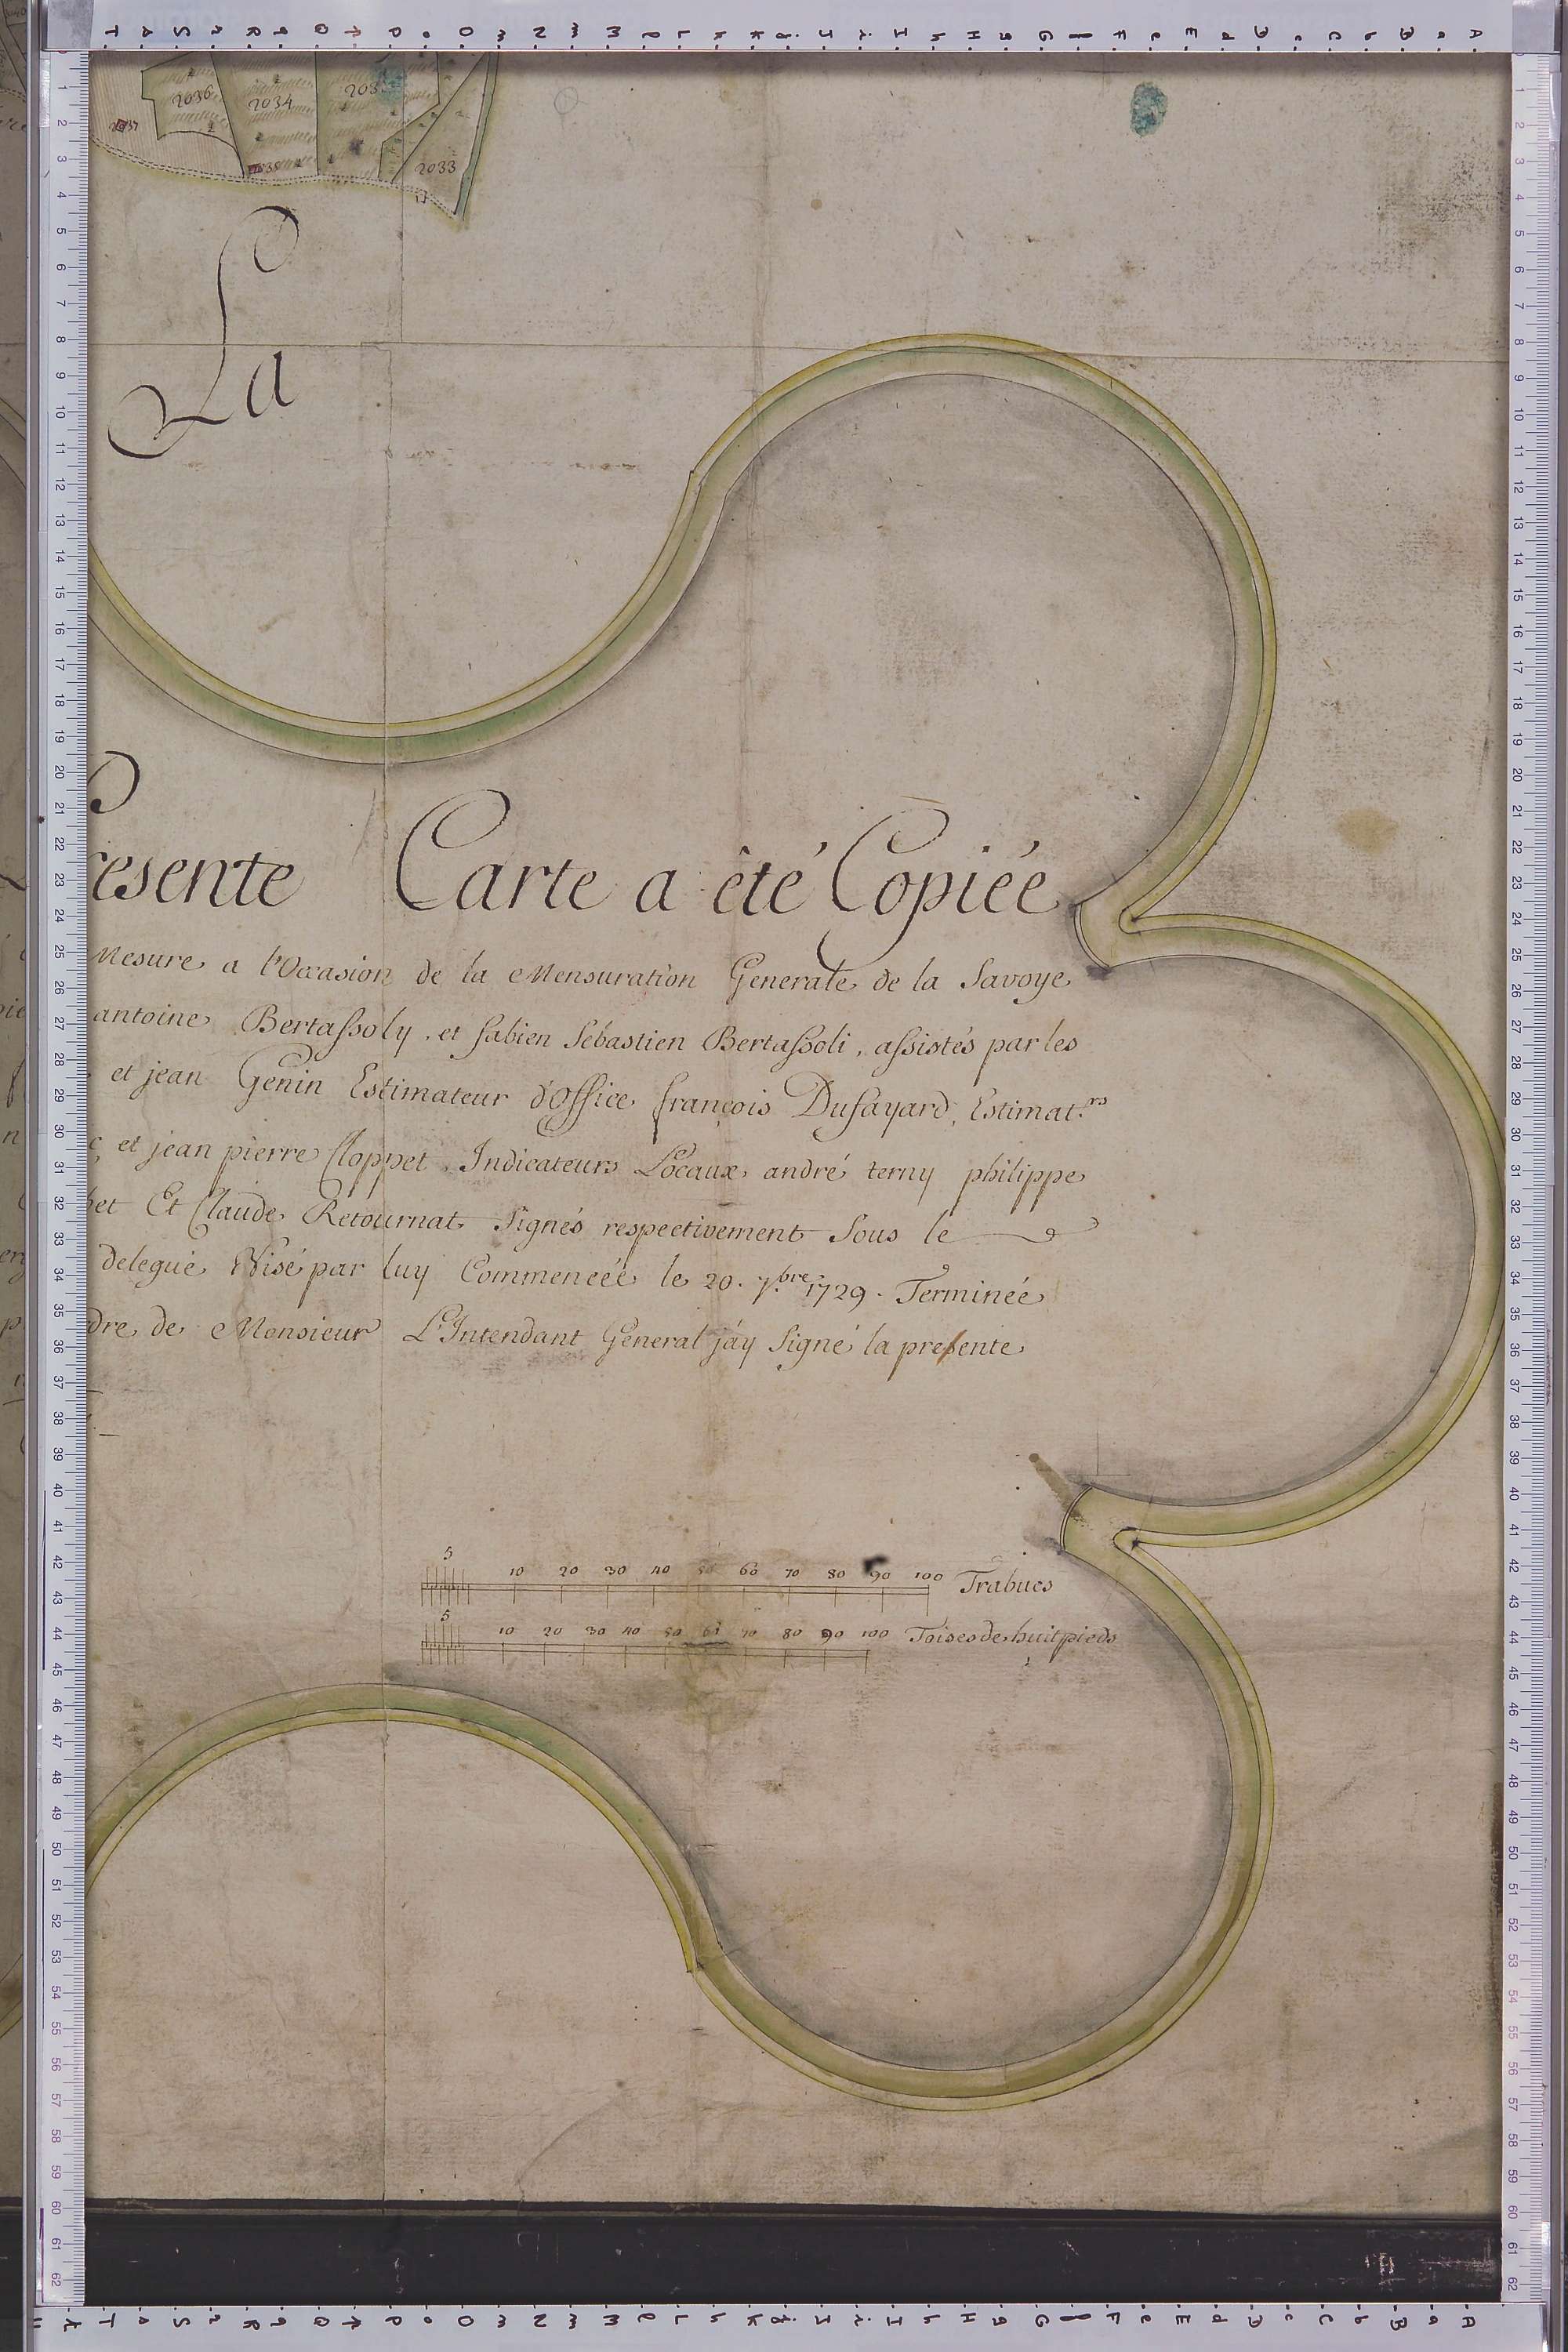 2036
2034
2033
La
resente Carte a été Copiée
Mesure a l'Occasion de la Mensuration Generale de la Savoye
antoine Bertassoly, et fabien Sebastien Bertassoli, assistés par les
et jean Genin Estimateur d'Office françois Dufayard, Estimat.rs
et jean pierre Cloppet Indicateurs Locaux andré terny philippe
het Et Claude Retournat Signés respectivement Sous le
delegué Visé par luy Commencéé le 20. 7.bre 1729. Terminée
dre de Monsieur L'Intendant General j'ay Signé la presente
5 10 20 30 40 50 60 70 80 90 100 Trabucs
5 10 20 30 40 50 60 70 80 90 100 Toises de huit pieds